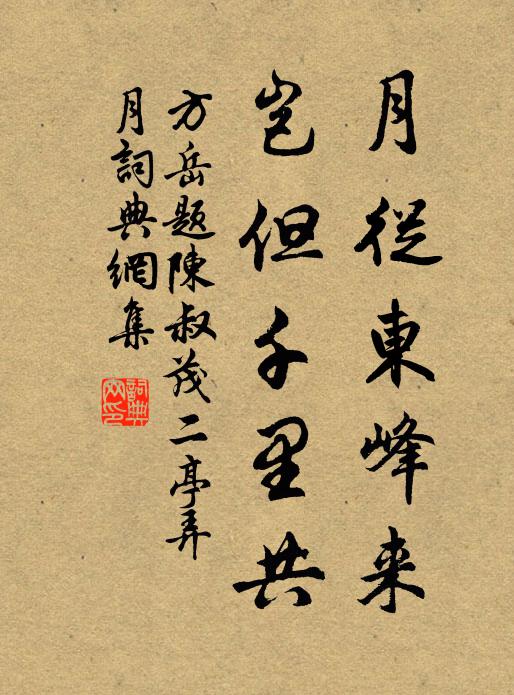 月從東峰来
豈但千里共
方岳題陳叔茂二亭弄
月詞典網集
詞典
网印